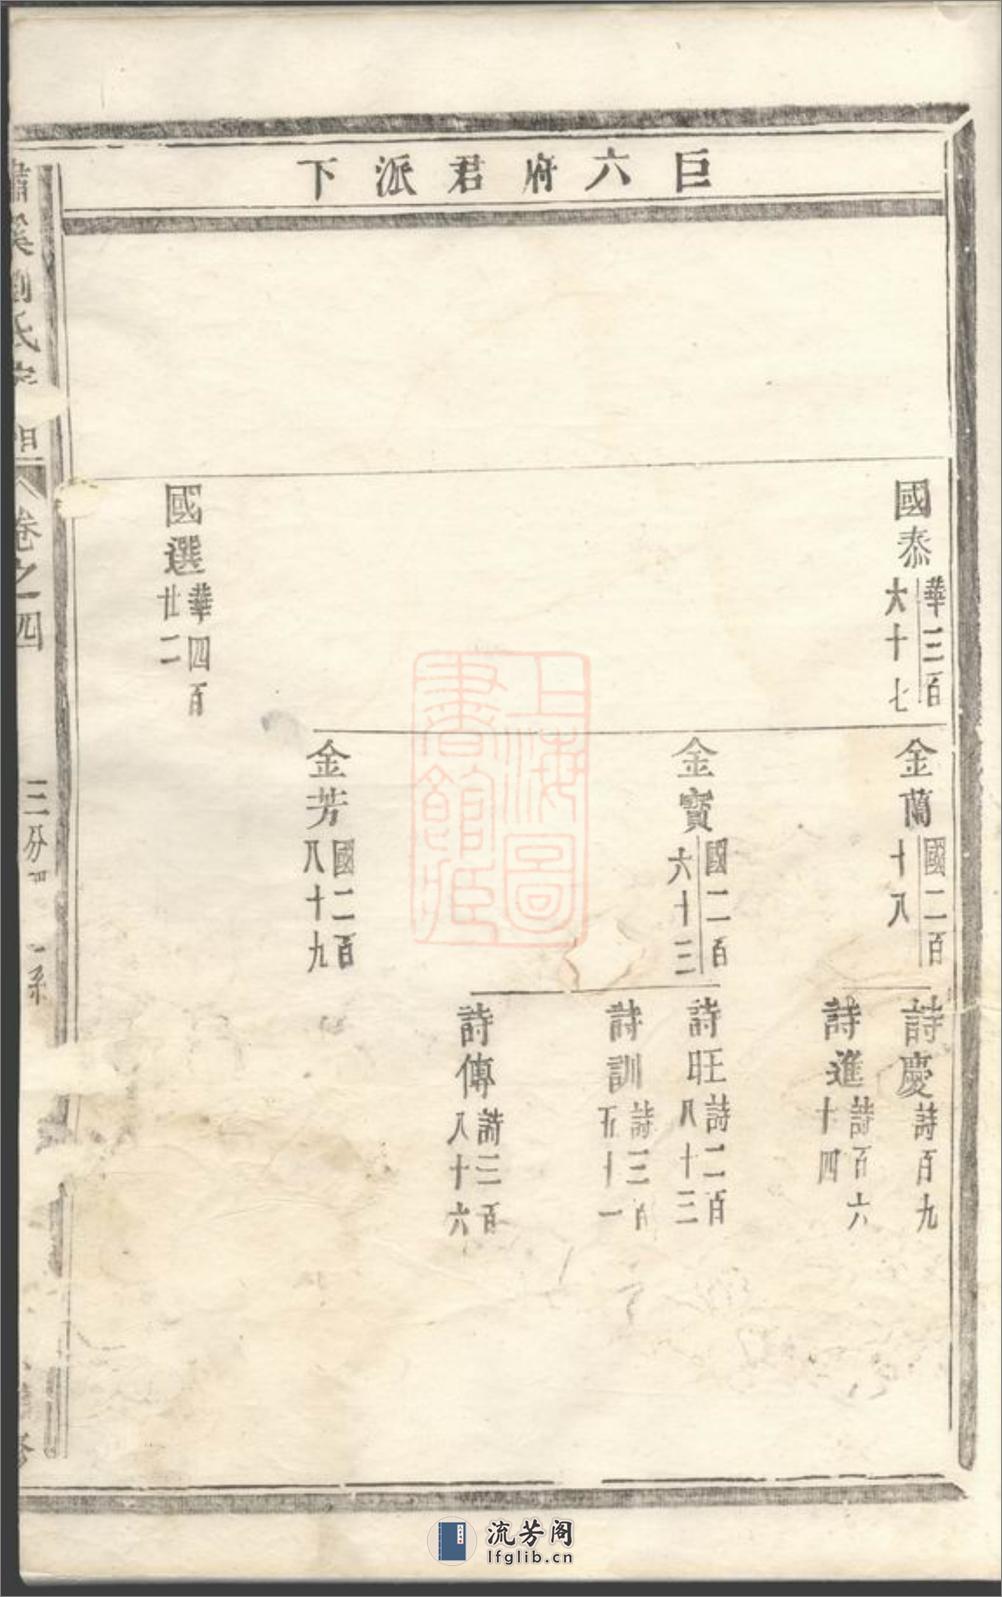 巨六府君派下
國泰 華三百大十七
國選 華四百廿二
金蘭 國二百十八
金寶 國二百六十三
金芳 國二百八十九
詩慶 詩百九
詩進 詩百六十四
詩旺 詩二百八十三
詩訓 詩三百五十一
詩傳 詩三百八十六
劉氏宗
卷之四
三分
系
修
上海圖書館藏
流芳阁
lfglib.cn